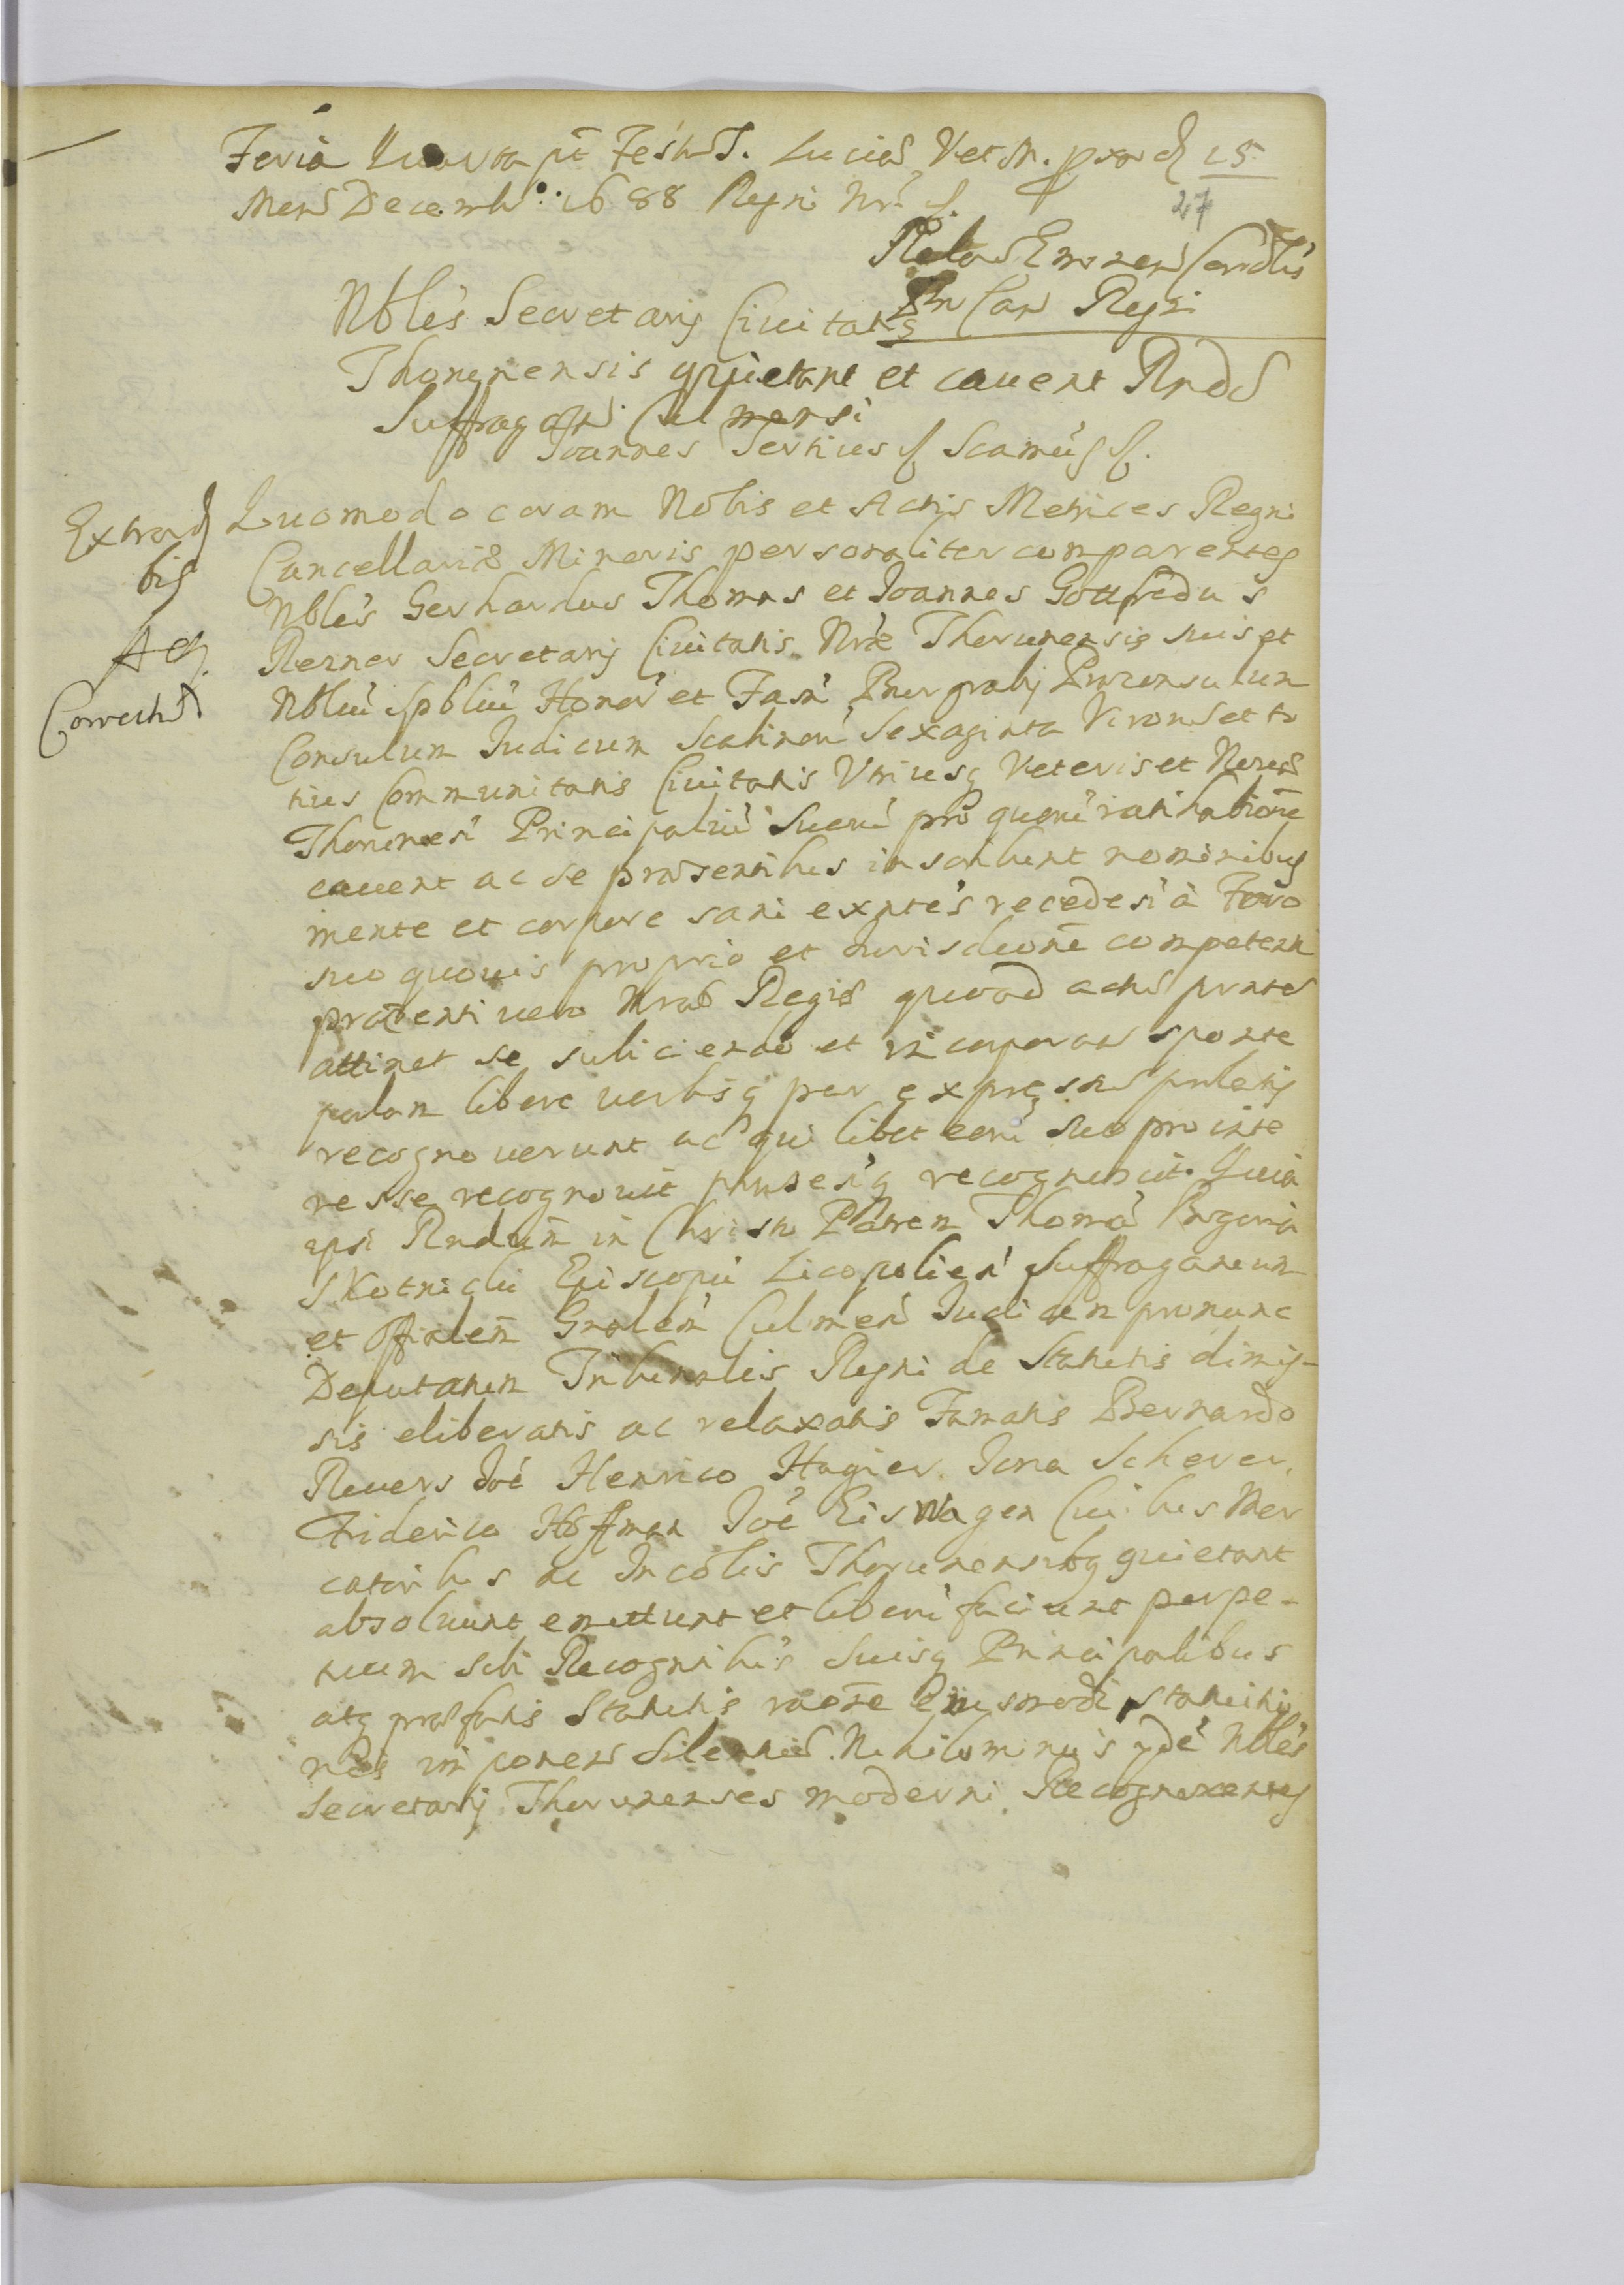 Feria Quarta pt Festu S. Luciæ Vet M. prd 15
Mens Decemb: 1688 Regni Nri
27
Relao Eminen Cardlis
Nbles Secretarij Civitatis
Can Regni
Thorunensis quietant et cavent Rndo
Suffragan Culmensi
Joannes Tertius Scamus
Extrad
bis
Ag
Correct
Quomodo coram Nobis et Actis Metrices Regni
Cancellariæ Minoris personaliter comparentes
Nbles Gerhardus Thomas et Joannes Gottfredus
Rezner Secretarij Civitatis Nræ Thorunensis suis et
Nbliu Spbliu Honor et Fam Burgrabij Proconsulum
Consulum Judicum Scabinoru Sexaginta Viroru et to
tius Communitatis Civitatis Utriusq Veteris et Novæ
Thorunen Principaliu Suoru pro quoru ratihabitione
cavent ac se præsentibus inscribunt nominibus
mente et corpore sani exntes recedesi à Foro
suo quovis proprio et Jurisdictione competenti
præsenti vero Nræ Regiæ quoad actu pnte
attinet se subiciendo et incorporan sponte
palam libere verbisq per expressu prlatis
recognoverunt ac qui libet eoru suo pro inte
resse recognovit phnsesq recognoscit. Quia
ipsi Rndum in Christo Patrem Thoma Bogoria
Skotnicki Episcopu Licopolien Suffraganeum
et Offialem Gnalem Culmen Judicem pronunc
Deputatum Tribunalis Regni de Statutis dimis-
sis eliberatis ac relaxatis Famatis Bernardo
Revers Joe Henrico Hagier Jona Scherer,
Friderico Hoffman Joe Eiswagen Civibus Mer
catoribus ac Incolis Thorunensibq quietant
absolvunt emittunt et liberu faciunt perpe-
tuum sibi Recogntibus Suisq Principalibus
atq præfatis Statutis raone Eiusmodi statuitio
nis imponen Silentiu. Nihilominus ijde Nbles
Secretarij Thorunenses moderni Recognoscentes